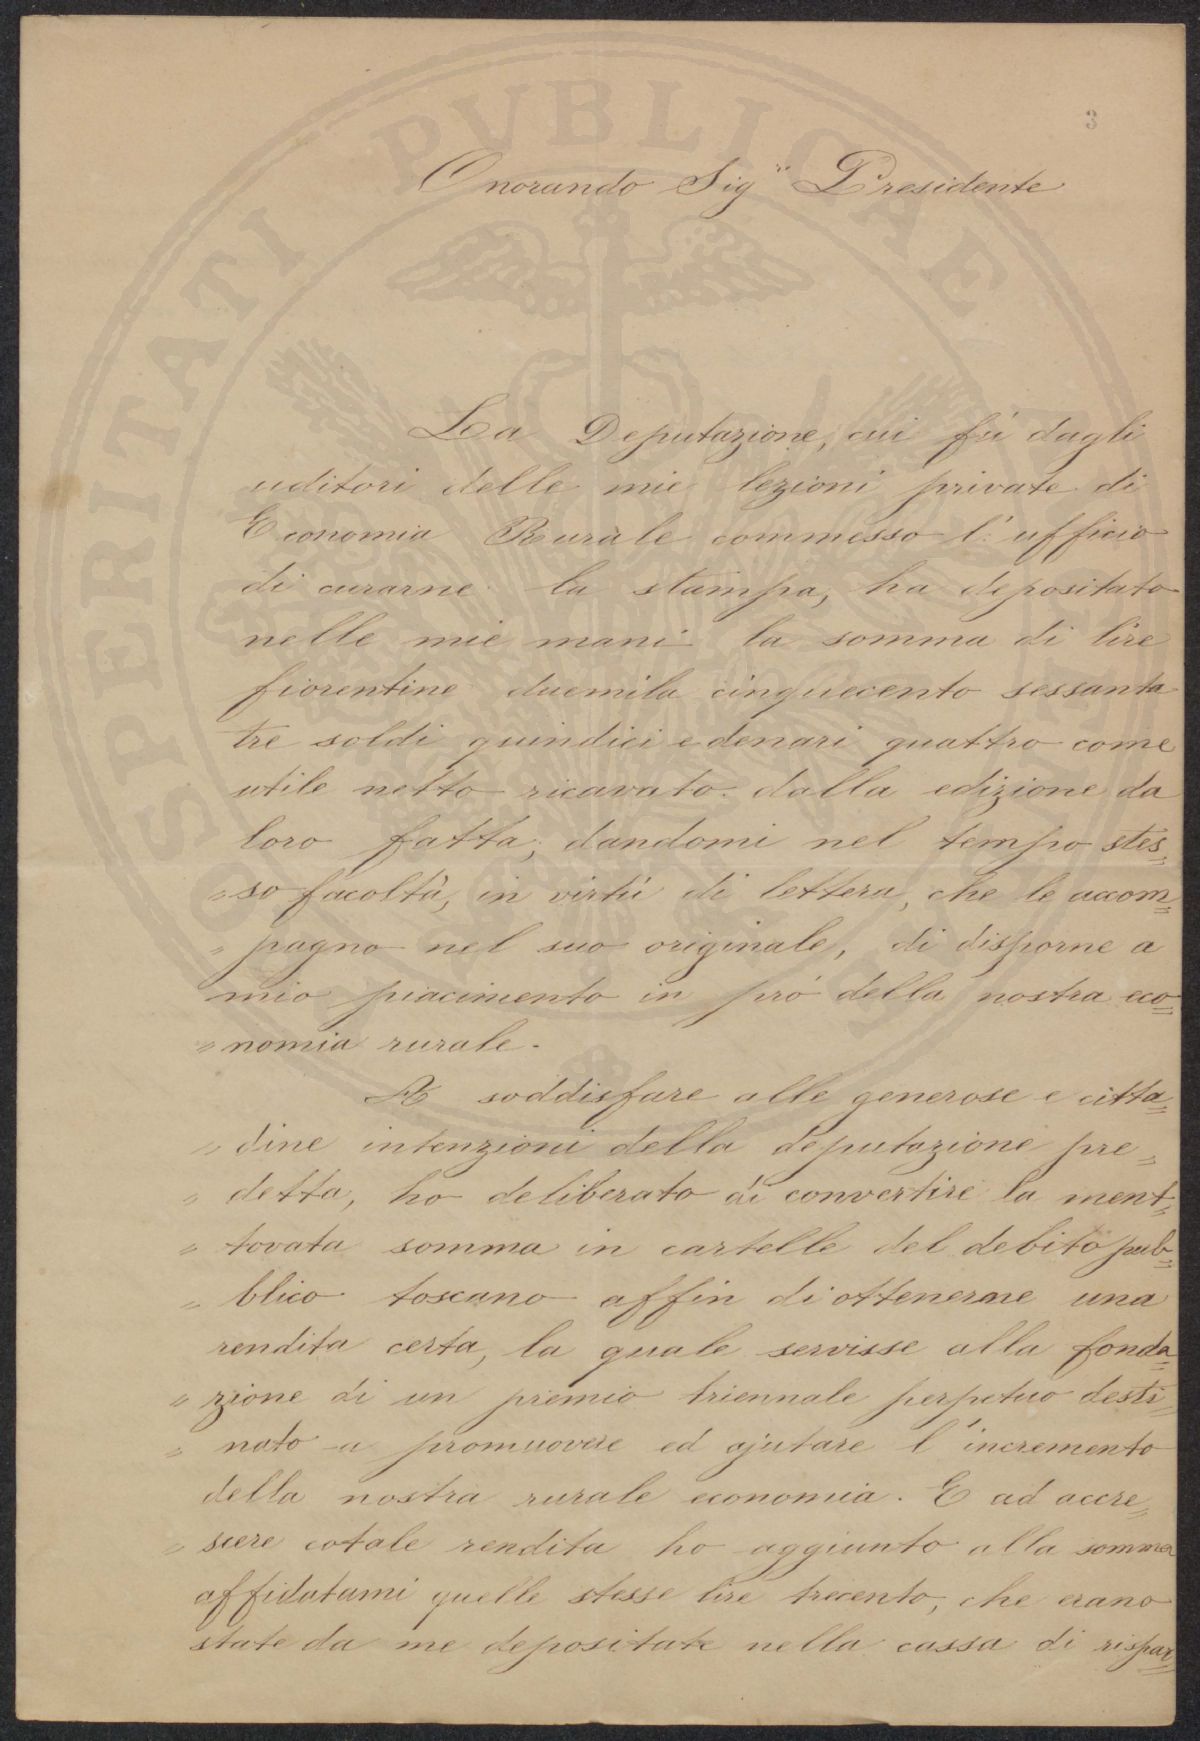 PROSPERITATI PUBLICAE AUGENDAE
3
Onorando Sig.re Presidente
La Deputazione, cui fù dagli
uditori delle mie lezioni private di
Economia Rurale commesso l'ufficio
di curarne la stampa, ha depositato
nelle mie mani la somma di lire
fiorentine duemila cinquecento sessanta
tre soldi quindici e denari quattro come
utile netto ricavato dalla edizione da
loro fatta; dandomi nel tempo stes„
„so facoltà, in virtù di lettera, che le accom=
„pagno nel suo originale, di disporne a
mio piacimento in prò della nostra eco=
„nomia rurale.
A soddisfare alle generose e citta=
„dine intenzioni della deputazione pre„
„detta, ho deliberato di convertire la ment„
„tovata somma in cartelle del debito pub=
„blico toscano affin di ottenerne una
rendita certa, la quale servisse alla fonda=
„zione di un premio triennale perpetuo desti„
„nato a promuovere ed ajutare l'incremento
della nostra rurale economia. E ad accre„
„scere cotale rendita ho aggiunto alla somma
affidatami quelle stesse lire trecento, che erano
state da me depositate nella cassa di rispar=